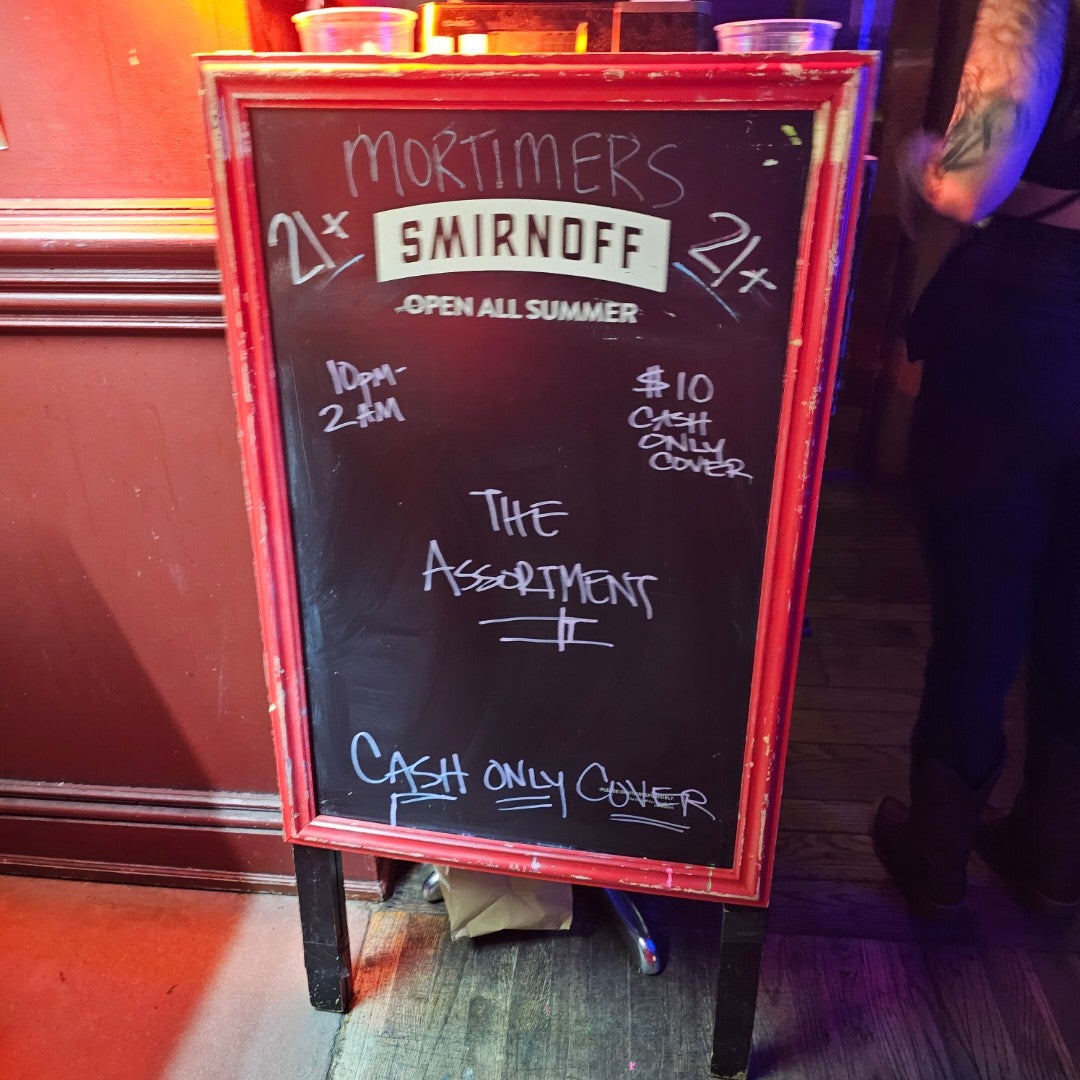 MORTIMERS
21+
SMIRNOFF
21+
OPEN ALL SUMMER
10pm-
2AM
$10
CASH
ONLY
COVER
THE
ASSORTMENT
CASH ONLY COVER